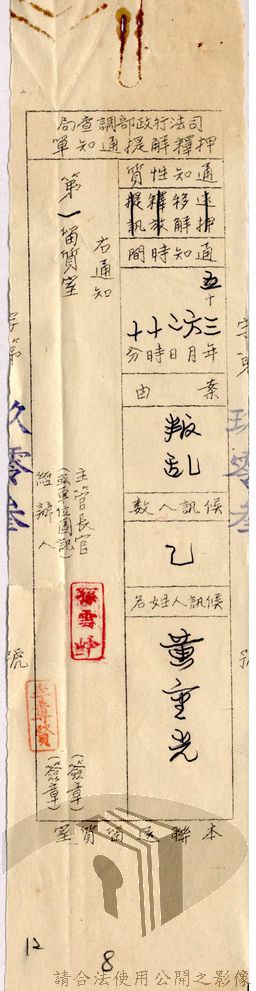 司法行政部調查局
押釋解提通知單
通知性質
逮押
移解
釋放
提訊
通知時間
五十三年六月二日十時十分
案由
叛亂
候訊人數
乙
候訊人姓名
黃重光
右通知
第一留質室
主管長官
(或單位圖記)
(簽章)
經辦人
(簽章)
本聯送留質室
字第
玖零叁
號
12
8
請合法使用公開之影像